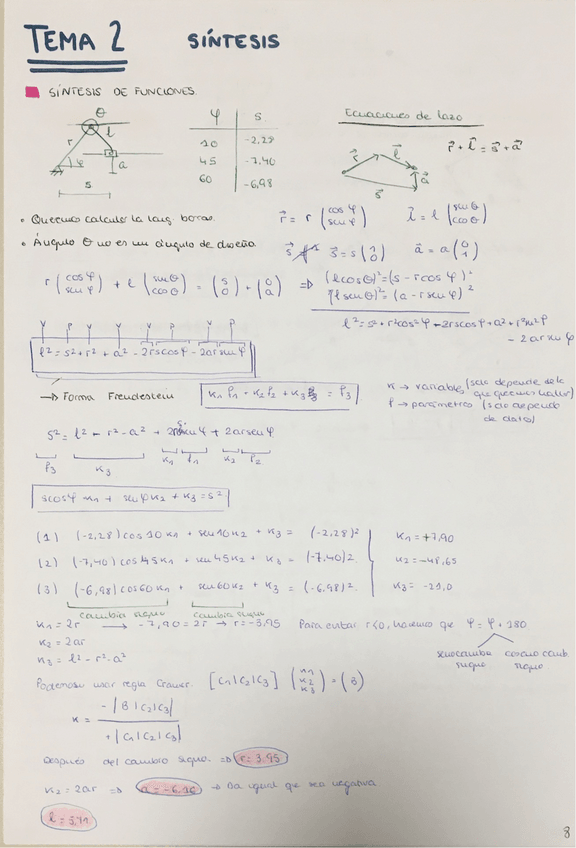 TEMA 2 SÍNTESIS
SÍNTESIS DE FUNCIONES.
θ
r l
φ a
s
φ s
10 -2,28
45 -7,40
60 -6,98
Ecuaciones de lazo
r⃗ l⃗ a⃗ s⃗
r⃗ + l⃗ = s⃗ + a⃗
• Queremos calcular la long barras.
• Ángulo θ no es un ángulo de diseño.
r⃗ = r (cosφ senφ) l⃗ = l (senθ cosθ)
s⃗ = s (1 0) a⃗ = a (0 1)
r (cosφ senφ) + l (senθ cosθ) = (s 0) + (0 a) ⇒ (l cosθ)² = (s - r cosφ)²
(l senθ)² = (a - r senφ)²
l² = s² + r²cos²φ - 2rs cosφ + a² + r²sen²φ
- 2ar senφ
l² = s² + r² + a² - 2rs cosφ - 2ar senφ
→ Forma Freudestein
K₁ P₁ + K₂ P₂ + K₃ = P₃
K → variable (solo depende de lo que queremos hallar)
P → parámetros (solo depende de datos)
s² = l² - r² - a² + 2rs cosφ + 2ar senφ
P₃ K₃ K₁ P₁ K₂ P₂
s cosφ K₁ + senφ K₂ + K₃ = s²
(1) (-2,28) cos10 K₁ + sen10 K₂ + K₃ = (-2,28)²
K₁ = +7,90
(2) (-7,40) cos45 K₁ + sen45 K₂ + K₃ = (-7,40)²
K₂ = -48,65
(3) (-6,98) cos60 K₁ + sen60 K₂ + K₃ = (-6,98)²
K₃ = -21,0
cambia signo cambia signo
K₁ = 2r → -7,90 = 2r → r = -3,95 Para evitar r<0, hacemos que φ = φ + 180
K₂ = 2ar
seno cambia signo
K₃ = l² - r² - a²
Podemos usar regla Cramer. [C₁|C₂|C₃] (K₁ K₂ K₃) = (B)
K = - |B|C₂|C₃| / + |C₁|C₂|C₃|
Después del cambio signo ⇒ r = 3.95
K₂ = 2ar ⇒ a = -6.16 → Da igual que sea negativa.
8